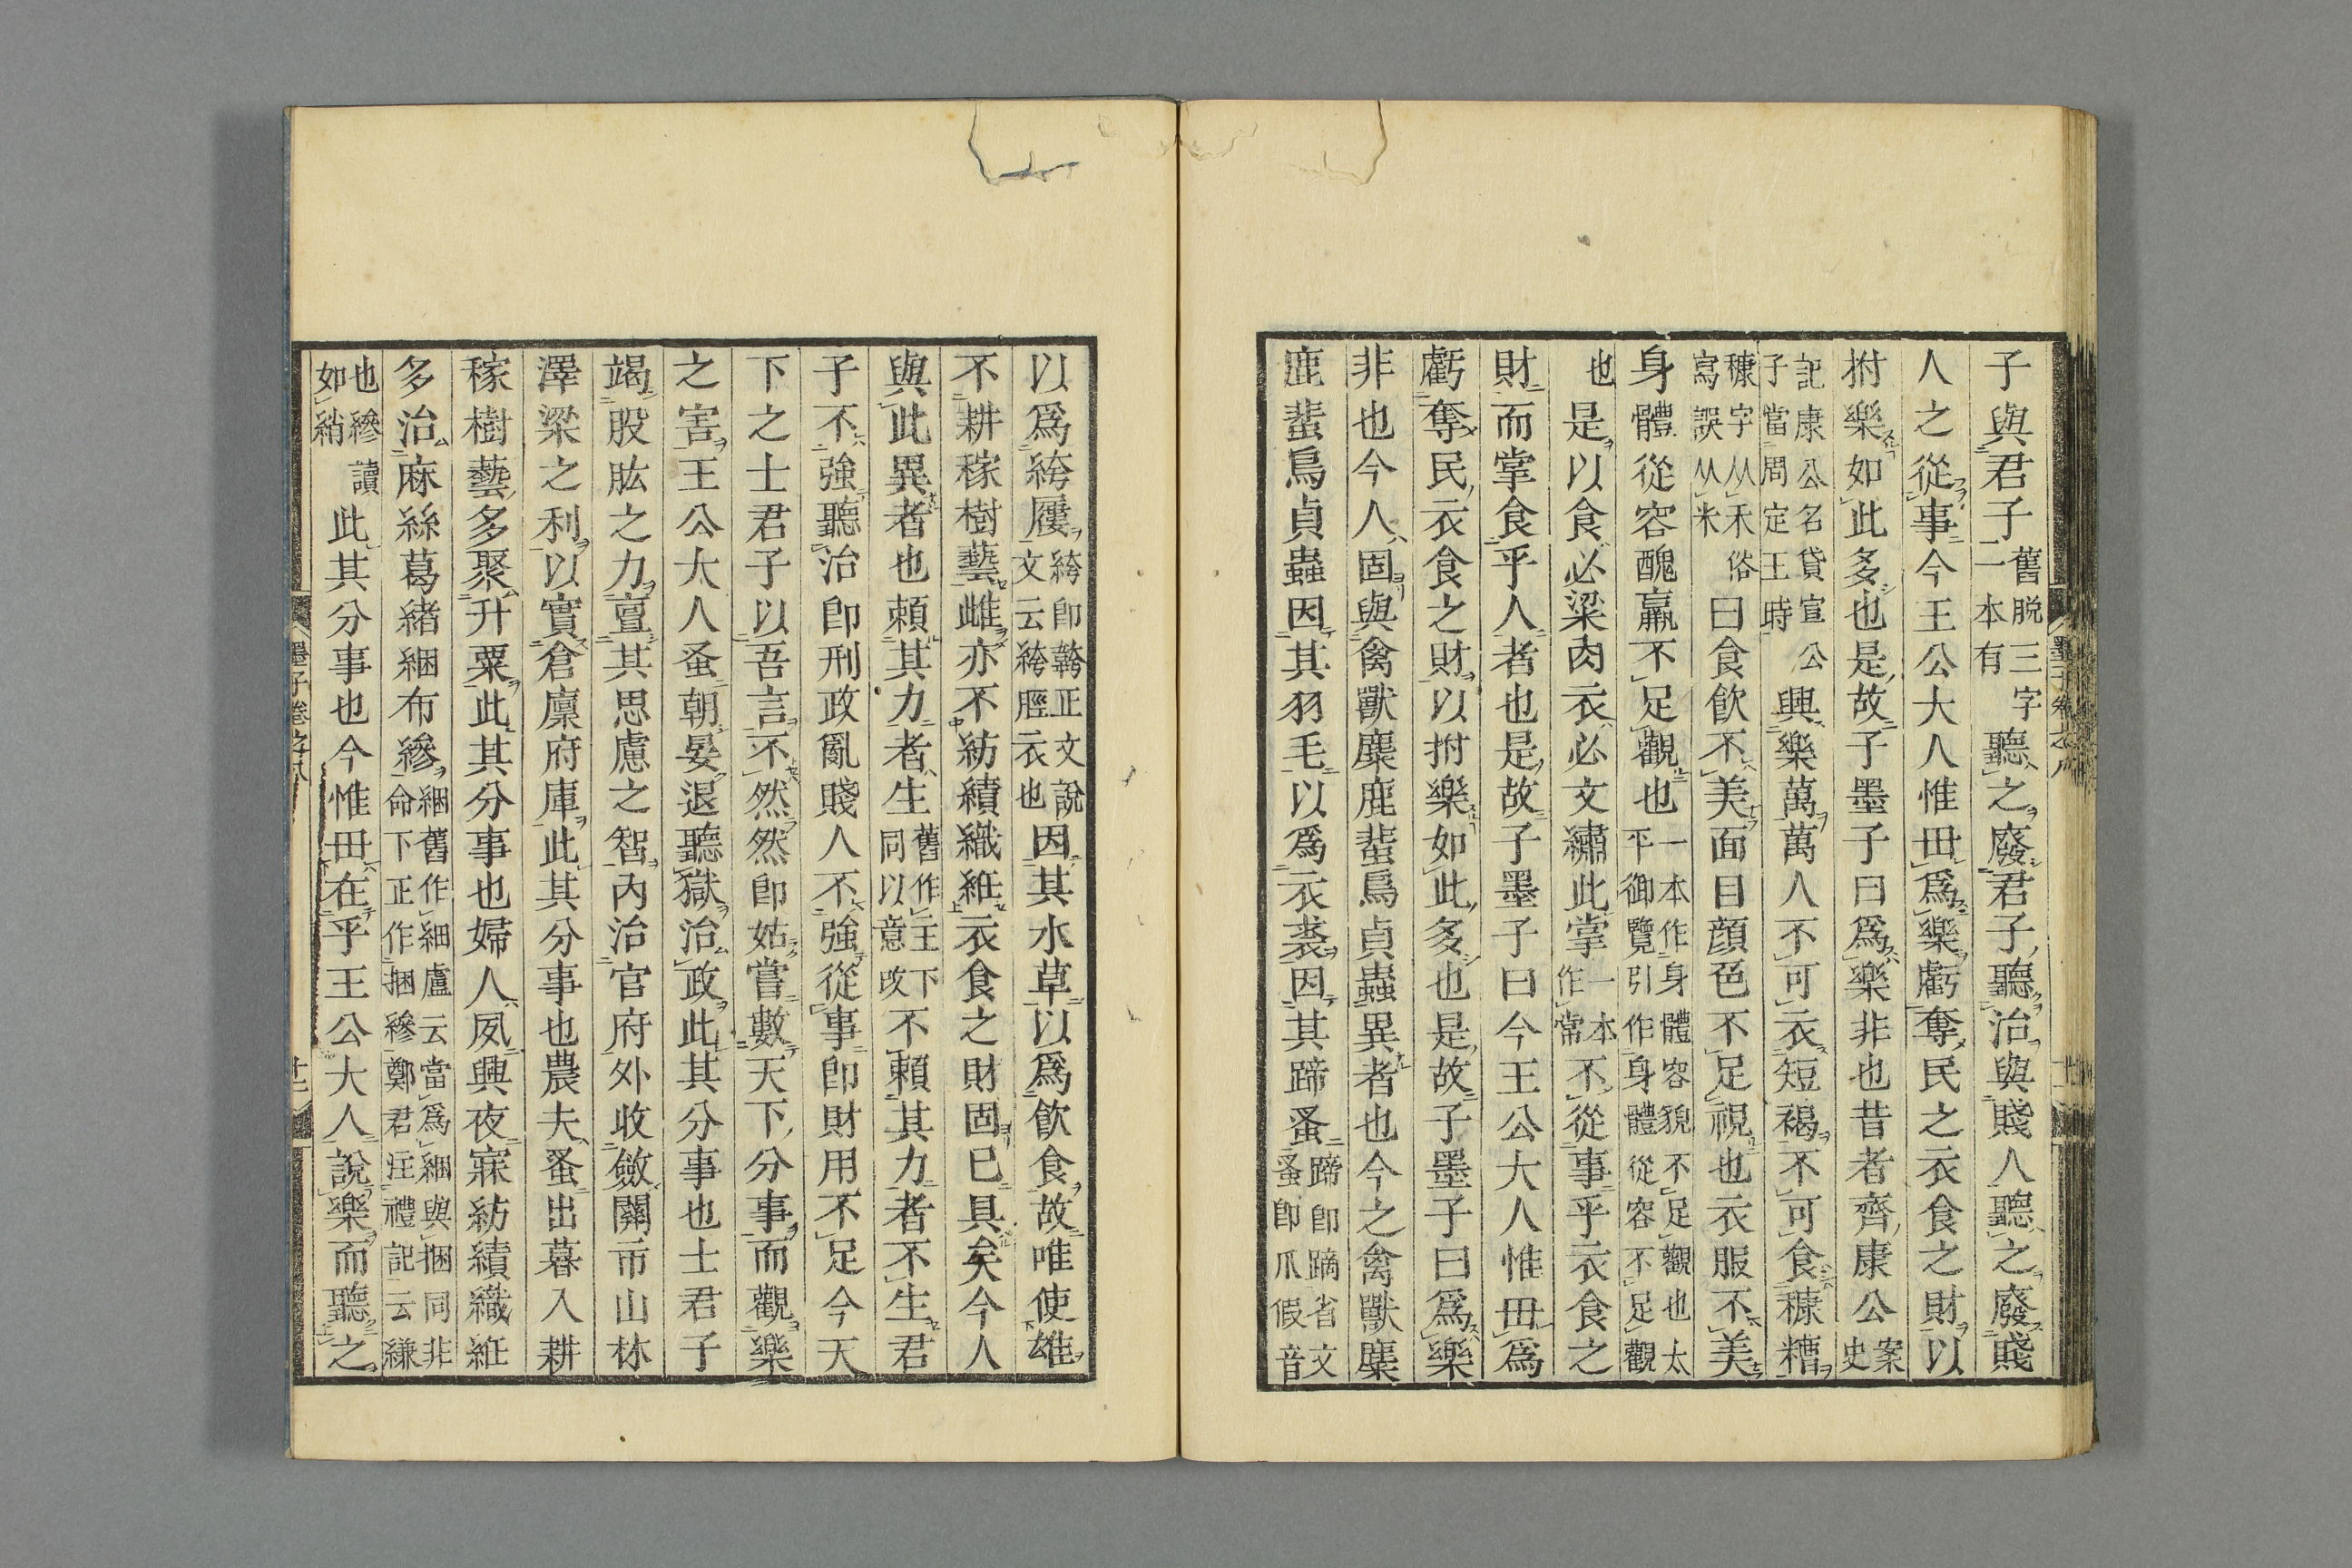 子與君子舊脫三字一本有聽之廢君子聽治與賤人聽之廢賤
人之從事今王公大人惟毌爲樂虧奪民之衣食之財以
拊樂如此多也是故子墨子曰爲樂非也昔者齊康公案史
記康公名貸宣公子當周定王時興樂萬萬人不可衣短褐不可食穅糟
穅字从禾俗寫誤从米曰食飲不美面目顏色不足視也衣服不美
身體從容醜羸不足觀也一本作身體容貌不足觀也太平御覽引作身體從容不足觀
也是以食必梁肉衣必文繡此掌一本作常不從事乎衣食之
財而掌食乎人者也是故子墨子曰今王公大人惟毌爲
虧奪民衣食之財以拊樂如此多也是故子墨子曰爲樂
非也今人固與禽獸麋鹿蜚鳥貞蟲異者也今之禽獸麋
鹿蜚鳥貞蟲因其羽毛以爲衣裘因其蹄蚤蹄卽蹢省文蚤卽爪假音
以爲絝屨絝卽鞯正文說文云絝脛衣也因其水草以爲飲食故唯使雄
不耕稼樹藝雌亦不紡績織紝衣食之財固已具矣今人
與此異者也賴其力者生舊作主下同以意改不賴其力者不生君
子不強聽治卽刑政亂賤人不強從事卽財用不足今天
下之士君子以吾言不然然卽姑嘗數天下分事而觀樂
之害王公大人蚤朝晏退聽獄治政此其分事也士君子
竭股肱之力亶其思慮之智內治官府外收斂關市山林
澤梁之利以實倉廩府庫此其分事也農夫蚤出暮入耕
稼樹藝多聚升粟此其分事也婦人夙興夜寐紡績織紝
多治麻絲葛緒綑布縿綑舊作細盧云當爲綑與捆同非命下正作捆縿鄭君注禮記云縑
也縿讀如綃此其分事也今惟毌在乎王公大人說樂而聽之
墨子卷之八
十二